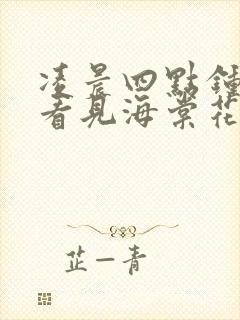 凌晨四點鐘
看見海棠花
芷一青